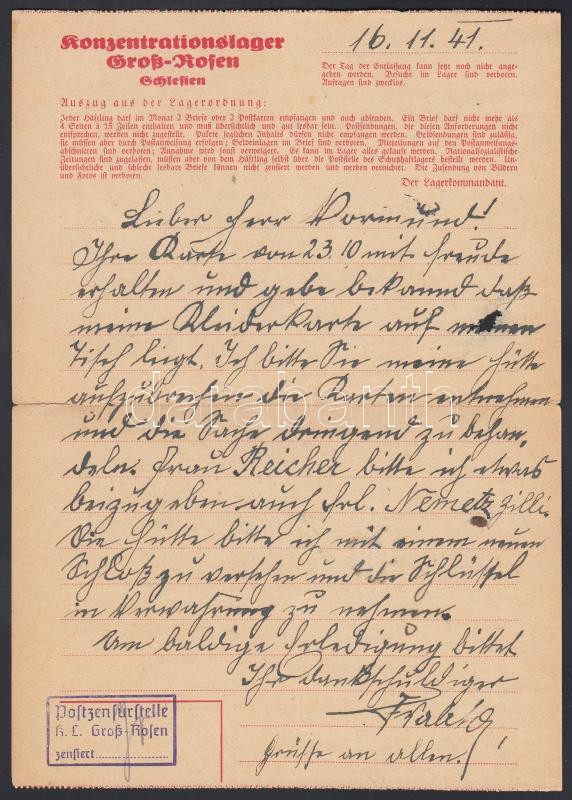 Konzentrationslager
Groß-Rosen
Schlesien
16.11.41.
Der Tag der Entlassung kann jetzt noch nicht ange-
geben werden. Besuche im Lager sind verboten.
Anfragen sind zwecklos.
Auszug aus der Lagerordnung:
Jeder Häftling darf im Monat 2 Briefe oder 2 Postkarten empfangen und auch absenden. Ein Brief darf nicht mehr als
4 Seiten à 15 Zeilen enthalten und muß übersichtlich und gut lesbar sein. Postsendungen, die diesen Anforderungen nicht
entsprechen, werden nicht zugestellt. Pakete jeglichen Inhalts dürfen nicht empfangen werden. Geldsendungen sind zulässig,
sie müssen aber durch Postanweisung erfolgen; Geldeinlagen im Brief sind verboten. Mitteilungen auf den Postanweisungs-
abschnitten sind verboten; Annahme wird sonst verweigert. Es kann im Lager alles gekauft werden. Nationalsozialistische
Zeitungen sind zugelassen, müssen aber von dem Häftling selbst über die Poststelle des Schutzhaftlagers bestellt werden. Un-
übersichtliche und schlecht lesbare Briefe können nicht zensiert werden und werden vernichtet. Die Zusendung von Bildern
und Fotos ist verboten.
Der Lagerkommandant.
Lieber Herr Vormund!
Ihre Karte von 23.10 mit Freude
erhalten und gebe bekannd daß
meine Kleiderkarte auf meinen
Tisch liegt. Ich bitte Sie meine Hütte
aufzubrechen die Karten entnehmen
und die Sache dringend zu behan,
deln. Frau Reicher bitte ich etwas
beizugeben auch Frl. Nemetz Zilli.
Die Hütte bitte ich mit einem neuen
Schloß zu versehen und die Schlüssel
in Verwahrung zu nehmen.
Um baldige Erledigung bittet
Ihr dankschuldiger
Grüsse an allen!
Postzensurstelle
K. L. Groß-Rosen
zensiert
darabanth